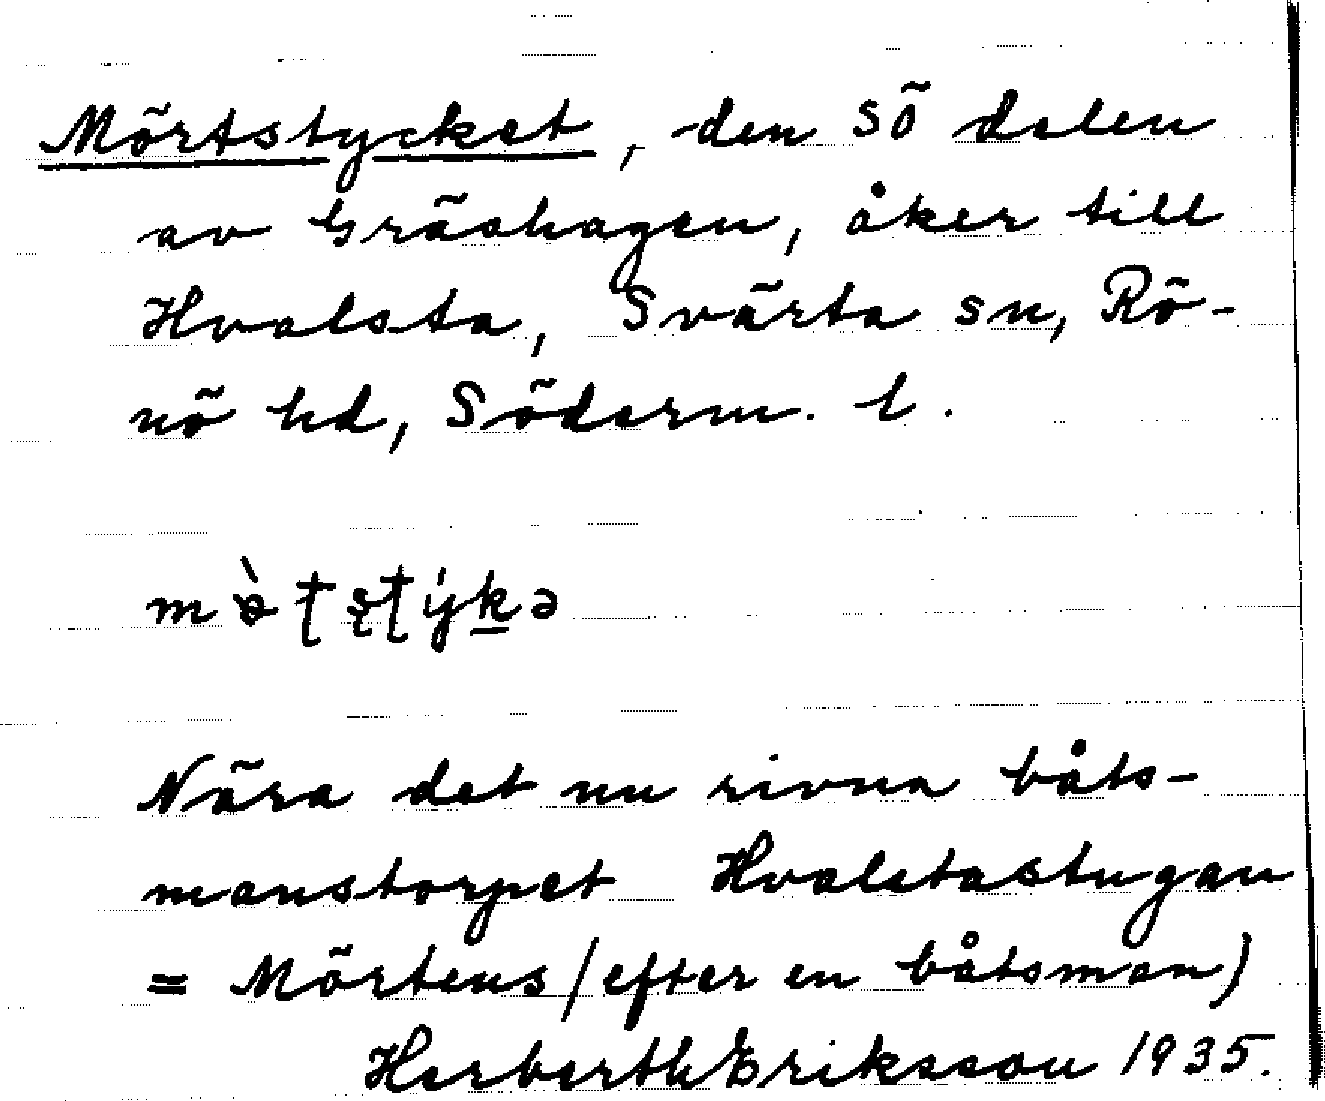 Mörtstycket, den sö delen
av Gräshagen, åker till
Hvalsta, Svärta sn, Rö-
nö hd, Söderm. l.
Nära det nu rivna båts-
manstorpet Hvalstastugan
= Mörtens (efter en båtsman)
Herberth Eriksson 1935.